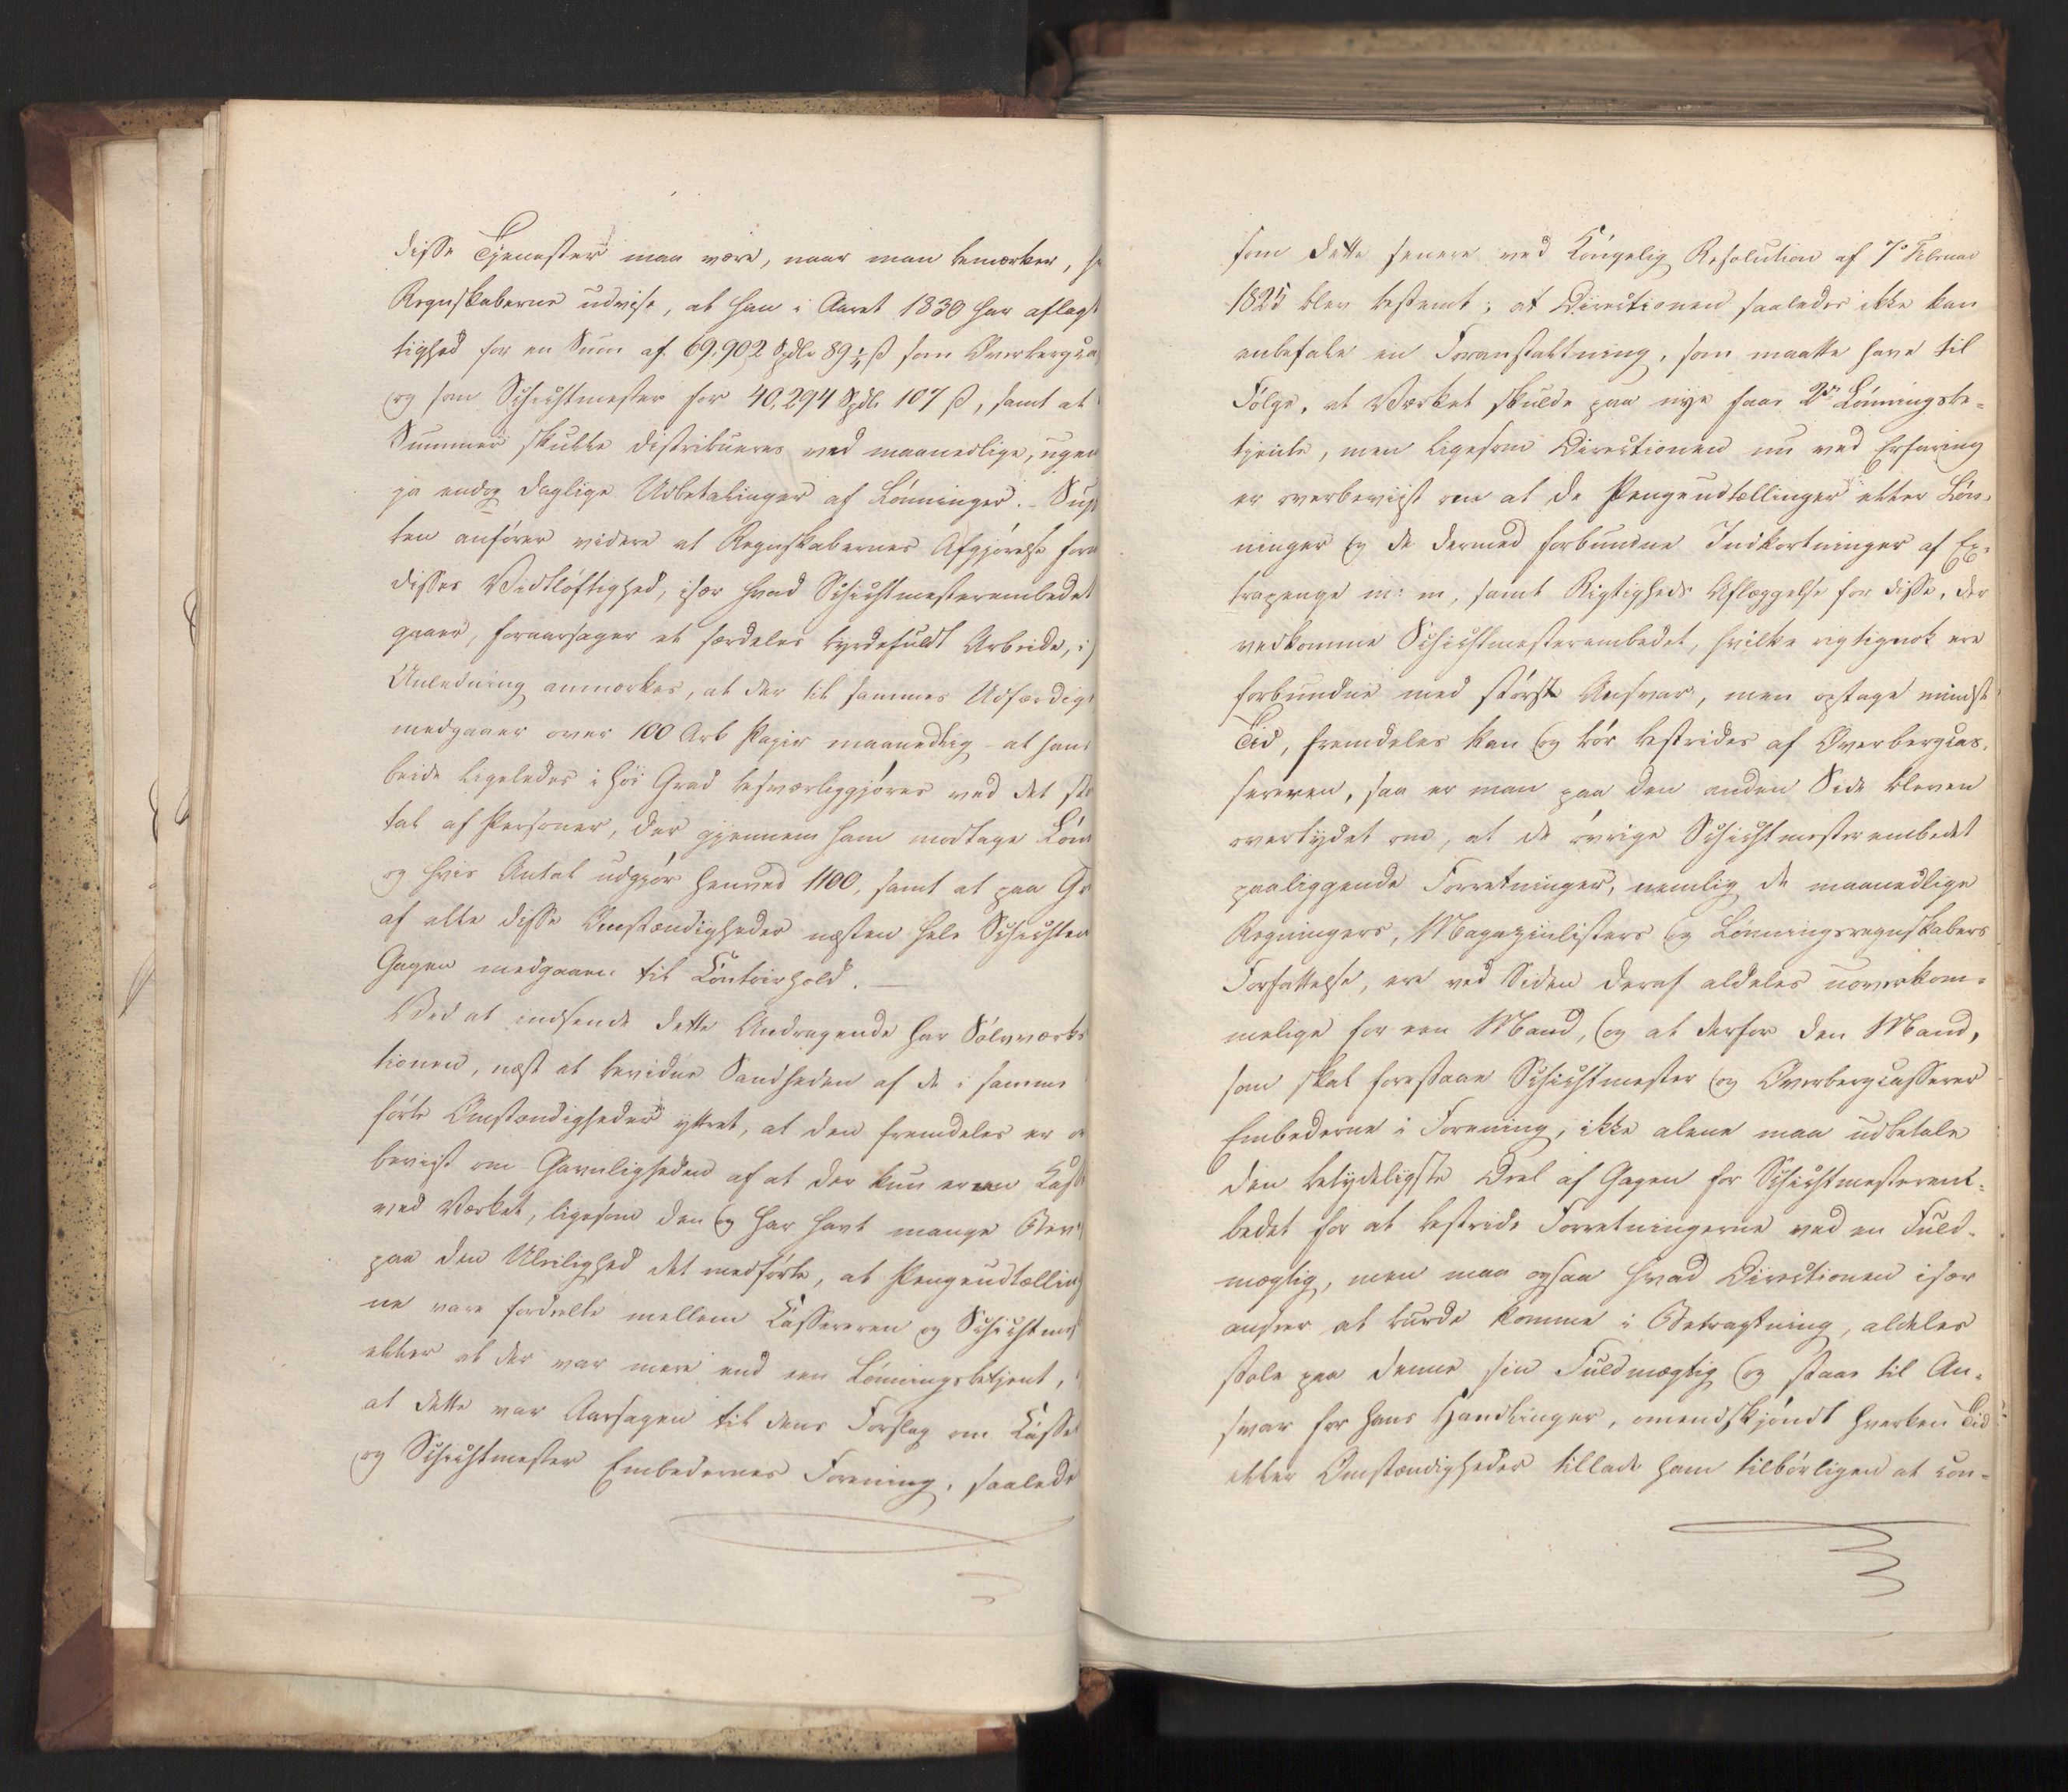 disse Tjenester maa være, naar man bemærker,
Regnskaberne udvise, at han i Aaret 1830 har aflagt
tighed for en Sum af 69,902 Spdlr 89¼ ß som Overbergca
og som Schichtmester for 40,294 Spdlr 107 ß, samt at
Summer skulle distribueres ved maanedlige, ugen
ja endog daglige Udbetalinger af Lønninger. - Sup
ten anfører videre at Regnskabernes Afgjørelse form
disses Vidtløftighed, især hvad Schichtmesterembedet
gaaer, foraarsager et særdeles byrdefuldt Arbeide, i
Anledning anmærkes, at der til sammes Udfærdig
medgaaer over 100 Ark Papir maanedlig - at hans
beide ligeledes i høi Grad besværliggjøres ved det sto
tal af Personer, der gjennem ham modtage Løn
og hvis Antal udgjør henved 1100, samt at paa Gr
af alle disse Omstændigheder næsten hele Schichtm
Gagen medgaaer til Contoirhold. —
Ved at indsende dette Andragende har Sølvværks
tionen, næst at bevidne Sandheden af de i samme
førte Omstændigheder yttret, at den fremdeles er o
beviist om Gavnligheden af at der kun er een Cass
ved Værket, ligesom den og har havt mange Bevi
paa den Uleilighed det medførte, at Pengeudtælling
ne vare fordeelte mellem Cassereren og Schichtmes
eller at der var mere end een Lønningsbetjent,
at dette var Aarsagen til dens Forslag om Casse
og Schichtmester Embedernes Forening, saalede
som dette senere ved Kongelig Resolution af 7de Februar
1825 blev bestemt; at Directionen saaledes ikke kan
anbefale en Foranstaltning, som maatte have til
Følge, at Værket skulde paa nye faae 2de Lønningsbe-
tjente, men ligesom Directionen nu ved Erfaring
er overbeviist om at de Pengeudtællinger eller Løn-
ninger og de dermed forbundne Indkortninger af Ex-
trapenge m: m, samt Rigtigheds Aflæggelse for disse, der
vedkomme Schichtmesterembedet, hvilke rigtignok ere
forbundne med størst Ansvar, men optage mindst
Tid, fremdeles kan og bør bestrides af Overbergcas-
sereren, saa er man paa den anden Side bleven
overtydet om, at de øvrige Schichtmesterembedet
paaliggende Forretninger, nemlig de maanedlige
Regningers, Magazinlisters og Lønningsregnskabers
Forfattelse, ere ved Siden deraf aldeles uoverkom-
melige for een Mand, og at derfor den Mand,
som skal forestaae Schichtmester og Overbergcasserer
Embederne i Forening, ikke alene maa udbetale
den betydeligste Deel af Gagen for Schichtmesterem-
bedet for at bestride Forretningerne ved en Fuld-
mægtig, men maa ogsaa hvad Directionen især
anseer at burde komme i Betragtning, aldeles
stole paa denne sin Fuldmægtig og staae til An-
svar for hans Handlinger, omendskjøndt hverken Tid
eller Omstændigheder tillade ham tilbørligen at con-